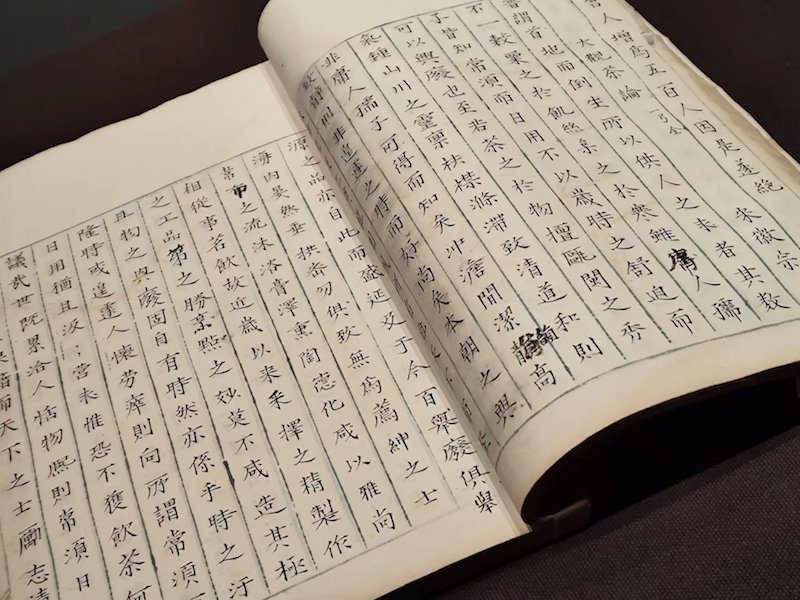 官人增為五百人因是遂絕
大觀茶論 宋徽宗
嘗謂首地而倒生所以供人之求者其類
不一穀粟之於飢絲枲之於寒雖庸人孺
子皆知常須而日用不以歲時之舒迫而
可以興廢也至若茶之於物擅甌閩之秀
氣鍾山川之靈稟袪襟滌滯致清道和則
非庸人孺子可得而知矣冲澹閒潔韻高
致靜則非遑遽之時而好尚矣本朝之興
源之品亦自此而盛延及于今百舉廢俱舉
海內晏然垂拱密勿俱致無為薦紳之士
韋布之流沐浴膏澤熏陶德化咸以雅尚
相從事茗飲故近歲以來采擇之精製作
之工品第之勝烹點之妙莫不咸造其極
且物之興廢固自有時然亦係乎時之汙
隆時或遑遽人懷勞瘁則向所謂常須
日用猶且汲〻營求惟恐不獲飲茶何
議哉世既累洽人恬物熙則常須日
而天下之士勵志清